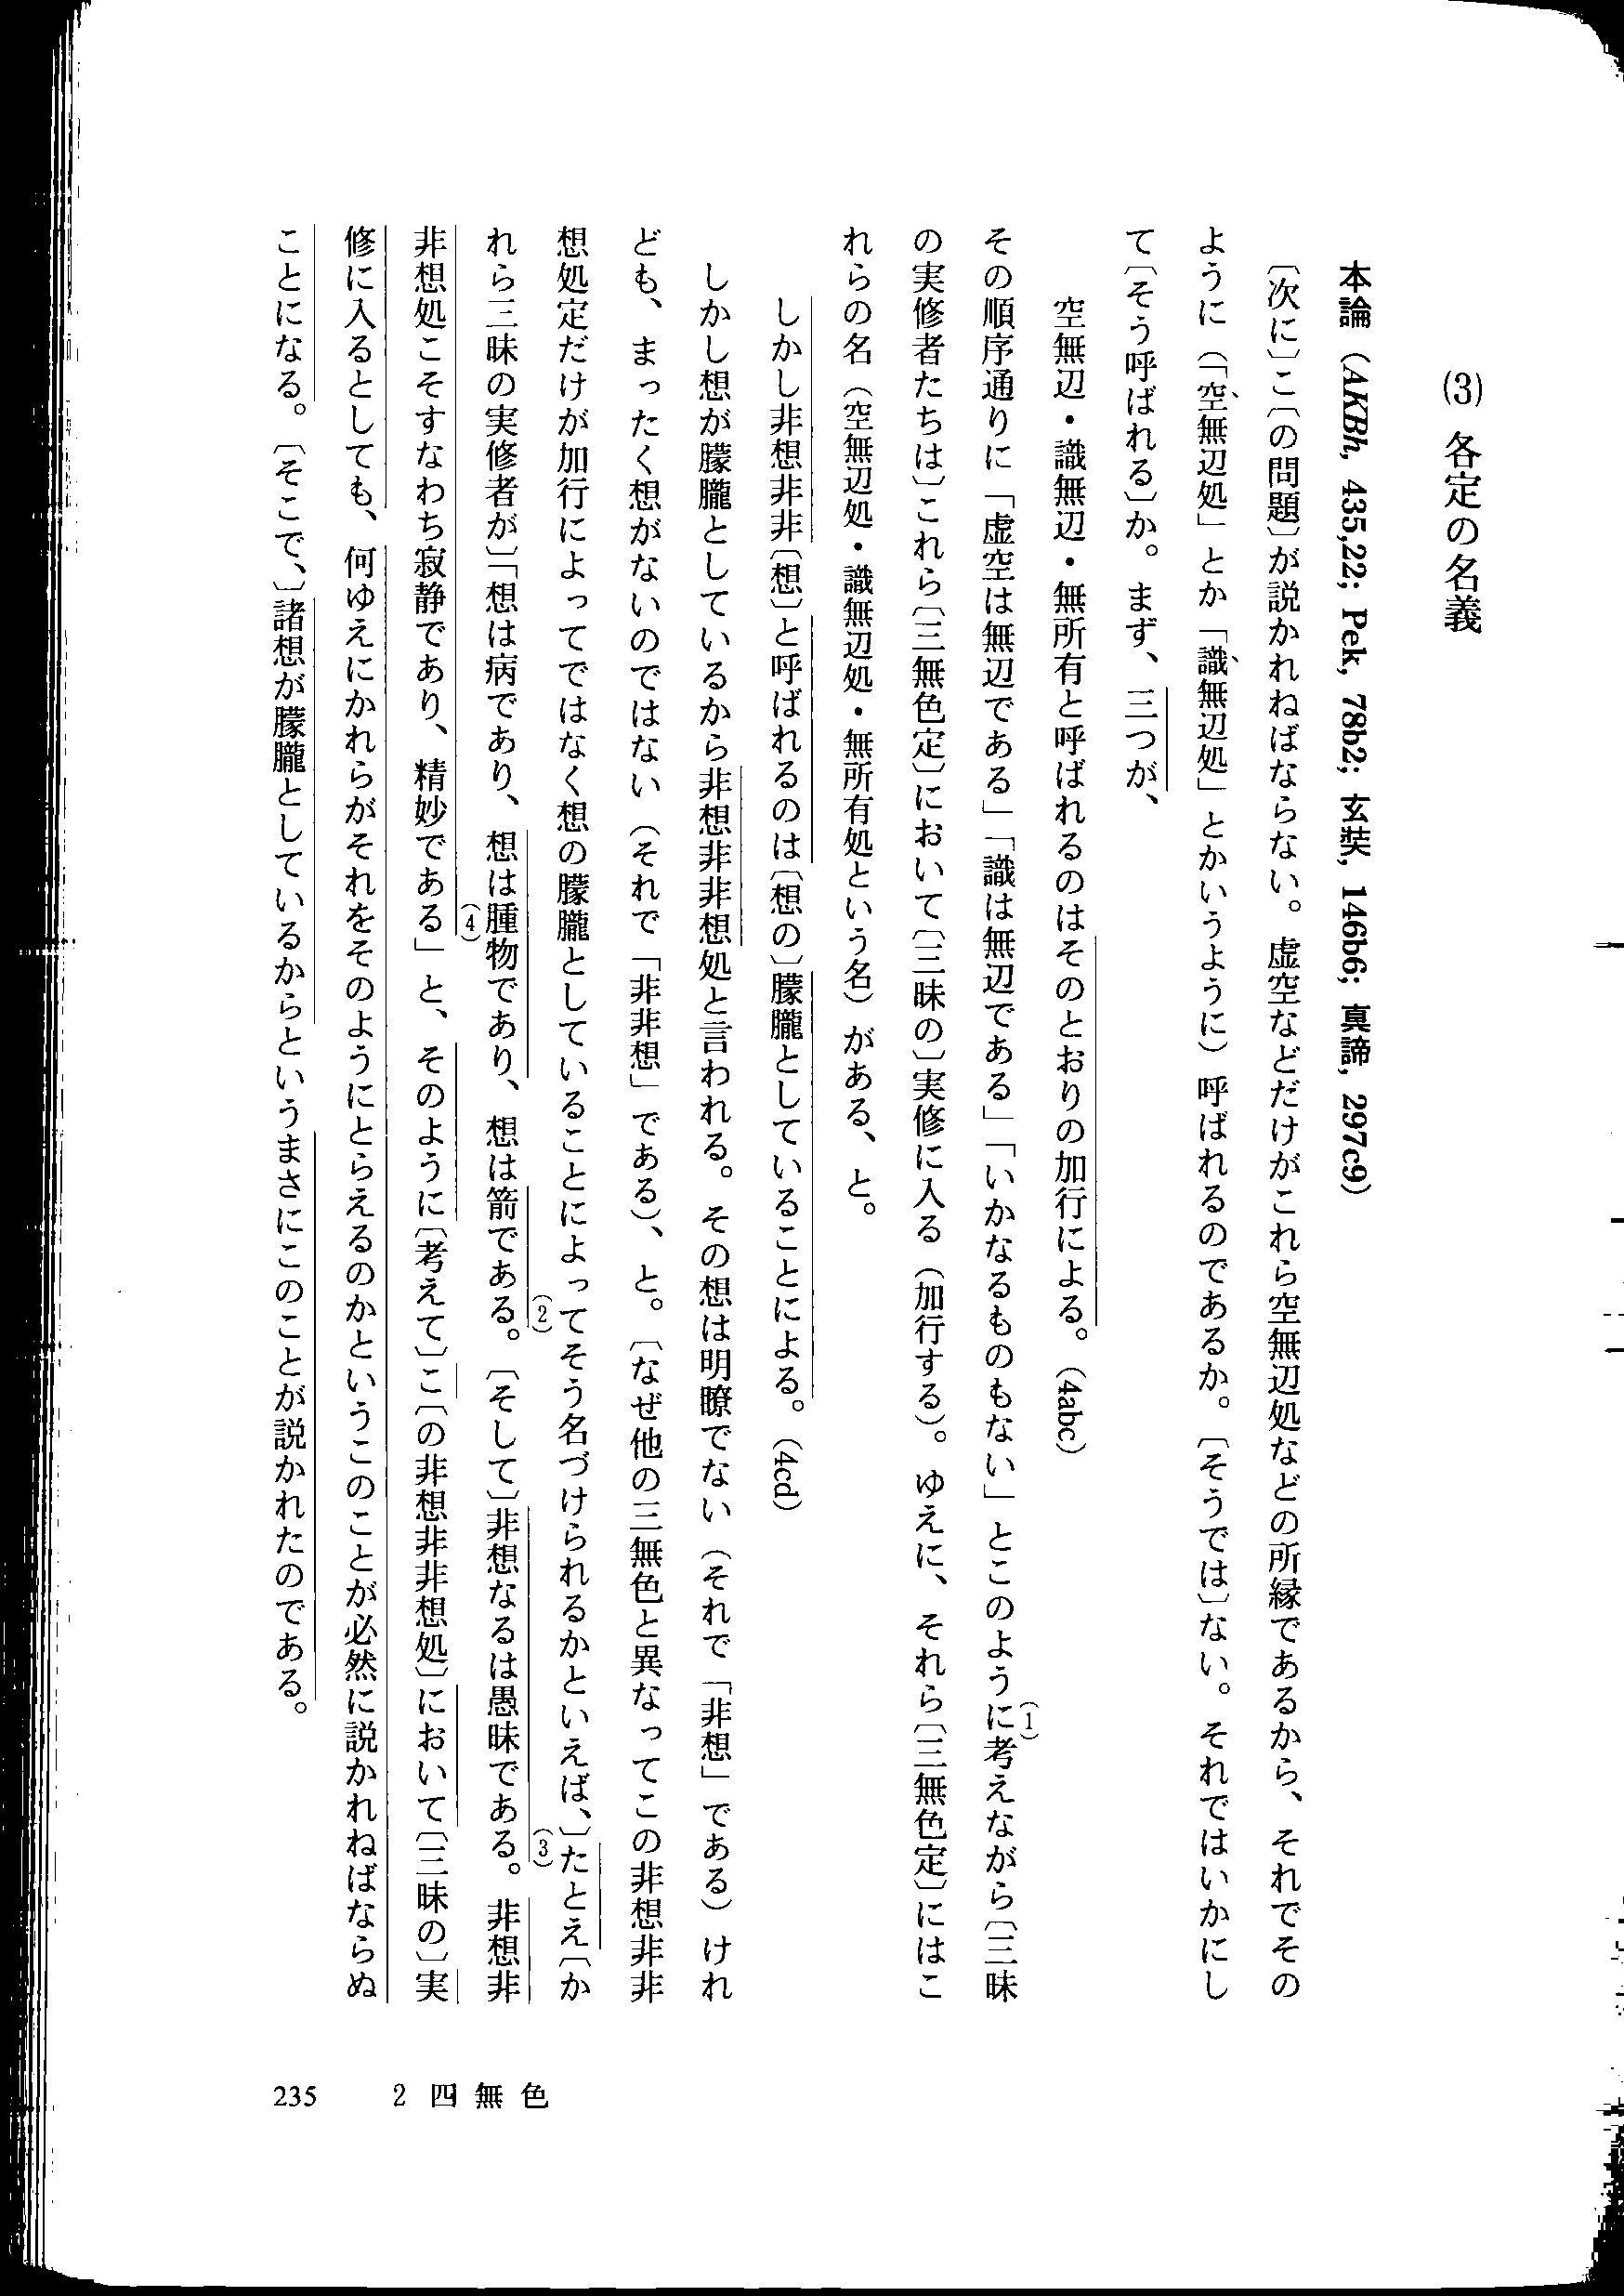 (3) 各定の名義
本論（AKBh, 435,22; Pek, 78b2; 玄奘, 146b6; 真諦, 297c9）
〔次に〕こ〔の問題〕が説かれねばならない。虚空などだけがこれら空無辺処などの所縁であるから、それでその
ように（「空無辺処」とか「識無辺処」とかいうように）呼ばれるのであるか。〔そうでは〕ない。それではいかにし
て〔そう呼ばれる〕か。まず、三つが、
空無辺・識無辺・無所有と呼ばれるのはそのとおりの加行による。（4abc）
その順序通りに「虚空は無辺である」「識は無辺である」「いかなるものもない」とこのように(1)考えながら〔三昧
の実修者たちは〕これら〔三無色定〕において〔三昧の〕実修に入る（加行する）。ゆえに、それら〔三無色定〕にはこ
れらの名（空無辺処・識無辺処・無所有処という名）がある、と。
しかし非想非非〔想〕と呼ばれるのは〔想の〕朦朧としていることによる。（4cd）
しかし想が朦朧としているから非想非非想処と言われる。その想は明瞭でない（それで「非想」である）けれ
ども、まったく想がないのではない（それで「非非想」である）、と。〔なぜ他の三無色と異なってこの非想非非
想処定だけが加行によってではなく想の朦朧としていることによってそう名づけられるかといえば、〕たとえ〔か
れら三昧の実修者が〕「想は病であり、想は腫物であり、想は箭である。(2)〔そして〕非想なるは愚昧である。(3)非想非
非想処こそすなわち寂静であり、精妙である」(4)と、そのように〔考えて〕こ〔の非想非非想処〕において〔三昧の〕実
修に入るとしても、何ゆえにかれらがそれをそのようにとらえるのかというこのことが必然に説かれねばならぬ
ことになる。〔そこで、〕諸想が朦朧としているからというまさにこのことが説かれたのである。
235　2 四無色